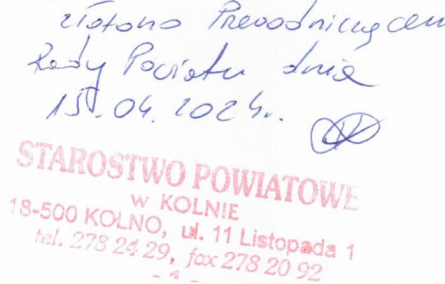 złożono Przewodniczącem
Rady Powiatu dnia
15.04.2024r.
STAROSTWO POWIATOWE
W KOLNIE
18-500 KOLNO, ul. 11 Listopada 1
tel. 278 24 29, fax 278 20 92
- 4 -